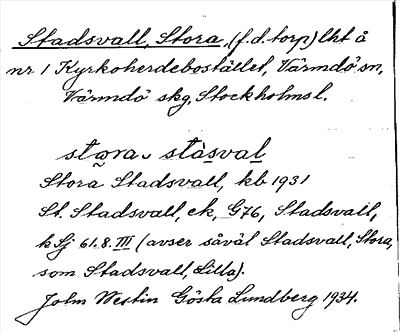 Stadsvall, Stora, (f.d. torp) lht å
nr 1 Kyrkoherdebostället, Värmdö sn,
Värmdö skg, Stockholms l.
stωra stásval
Stora Stadsvall, kb 1931
St. Stadsvall, ek, G76, Stadsvall,
k Sj 61.8.III (avser såväl Stadsvall, Stora,
som Stadsvall, Lilla).
John Westin Gösta Lundberg 1934.